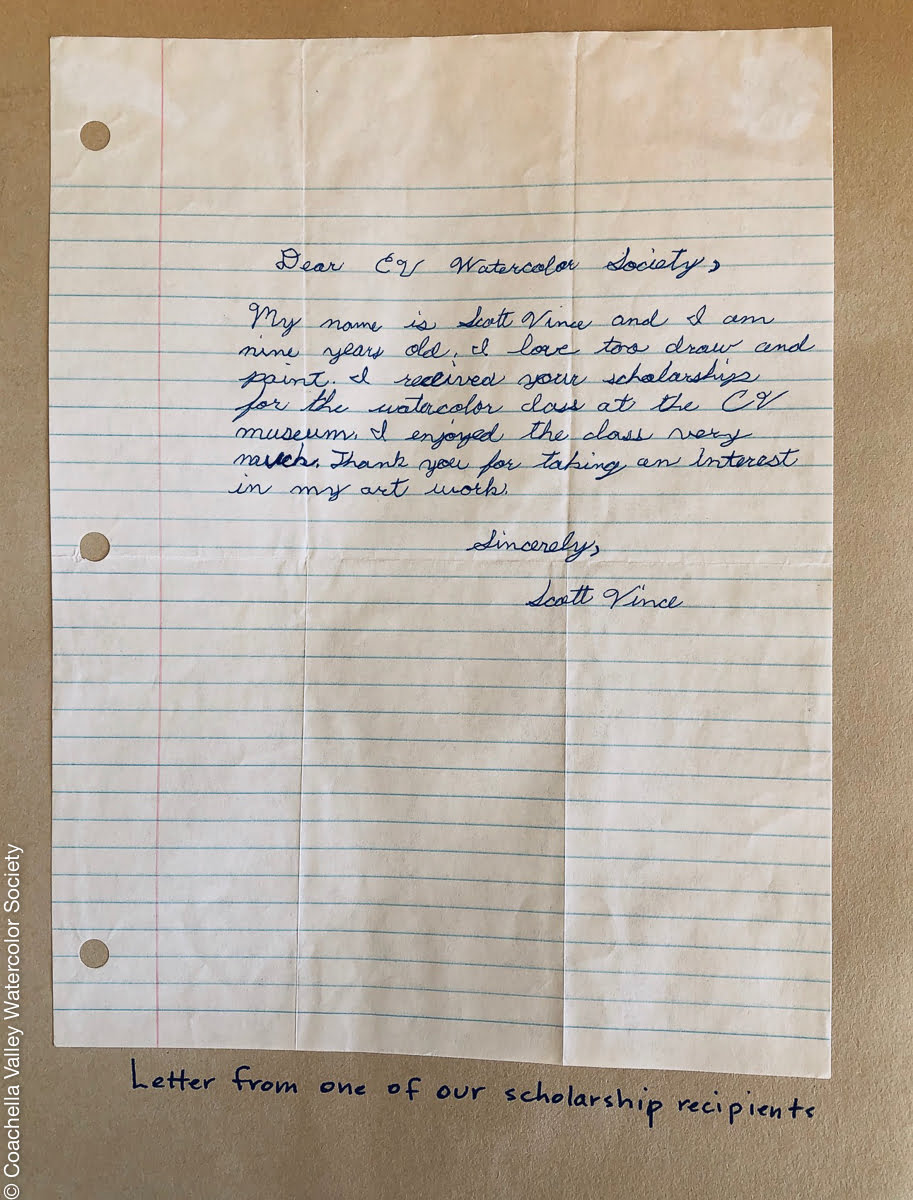 Dear CV Watercolor Society,
My name is Scott Vince and I am
nine years old. I love too draw and
paint. I recived your scholarship
for the watercolor class at the CV
museum. I enjoyed the class very
much. Thank you for taking an Interest
in my art work.
Sincerely,
Scott Vince
Letter from one of our scholarship recipients
© Coachella Valley Watercolor Society